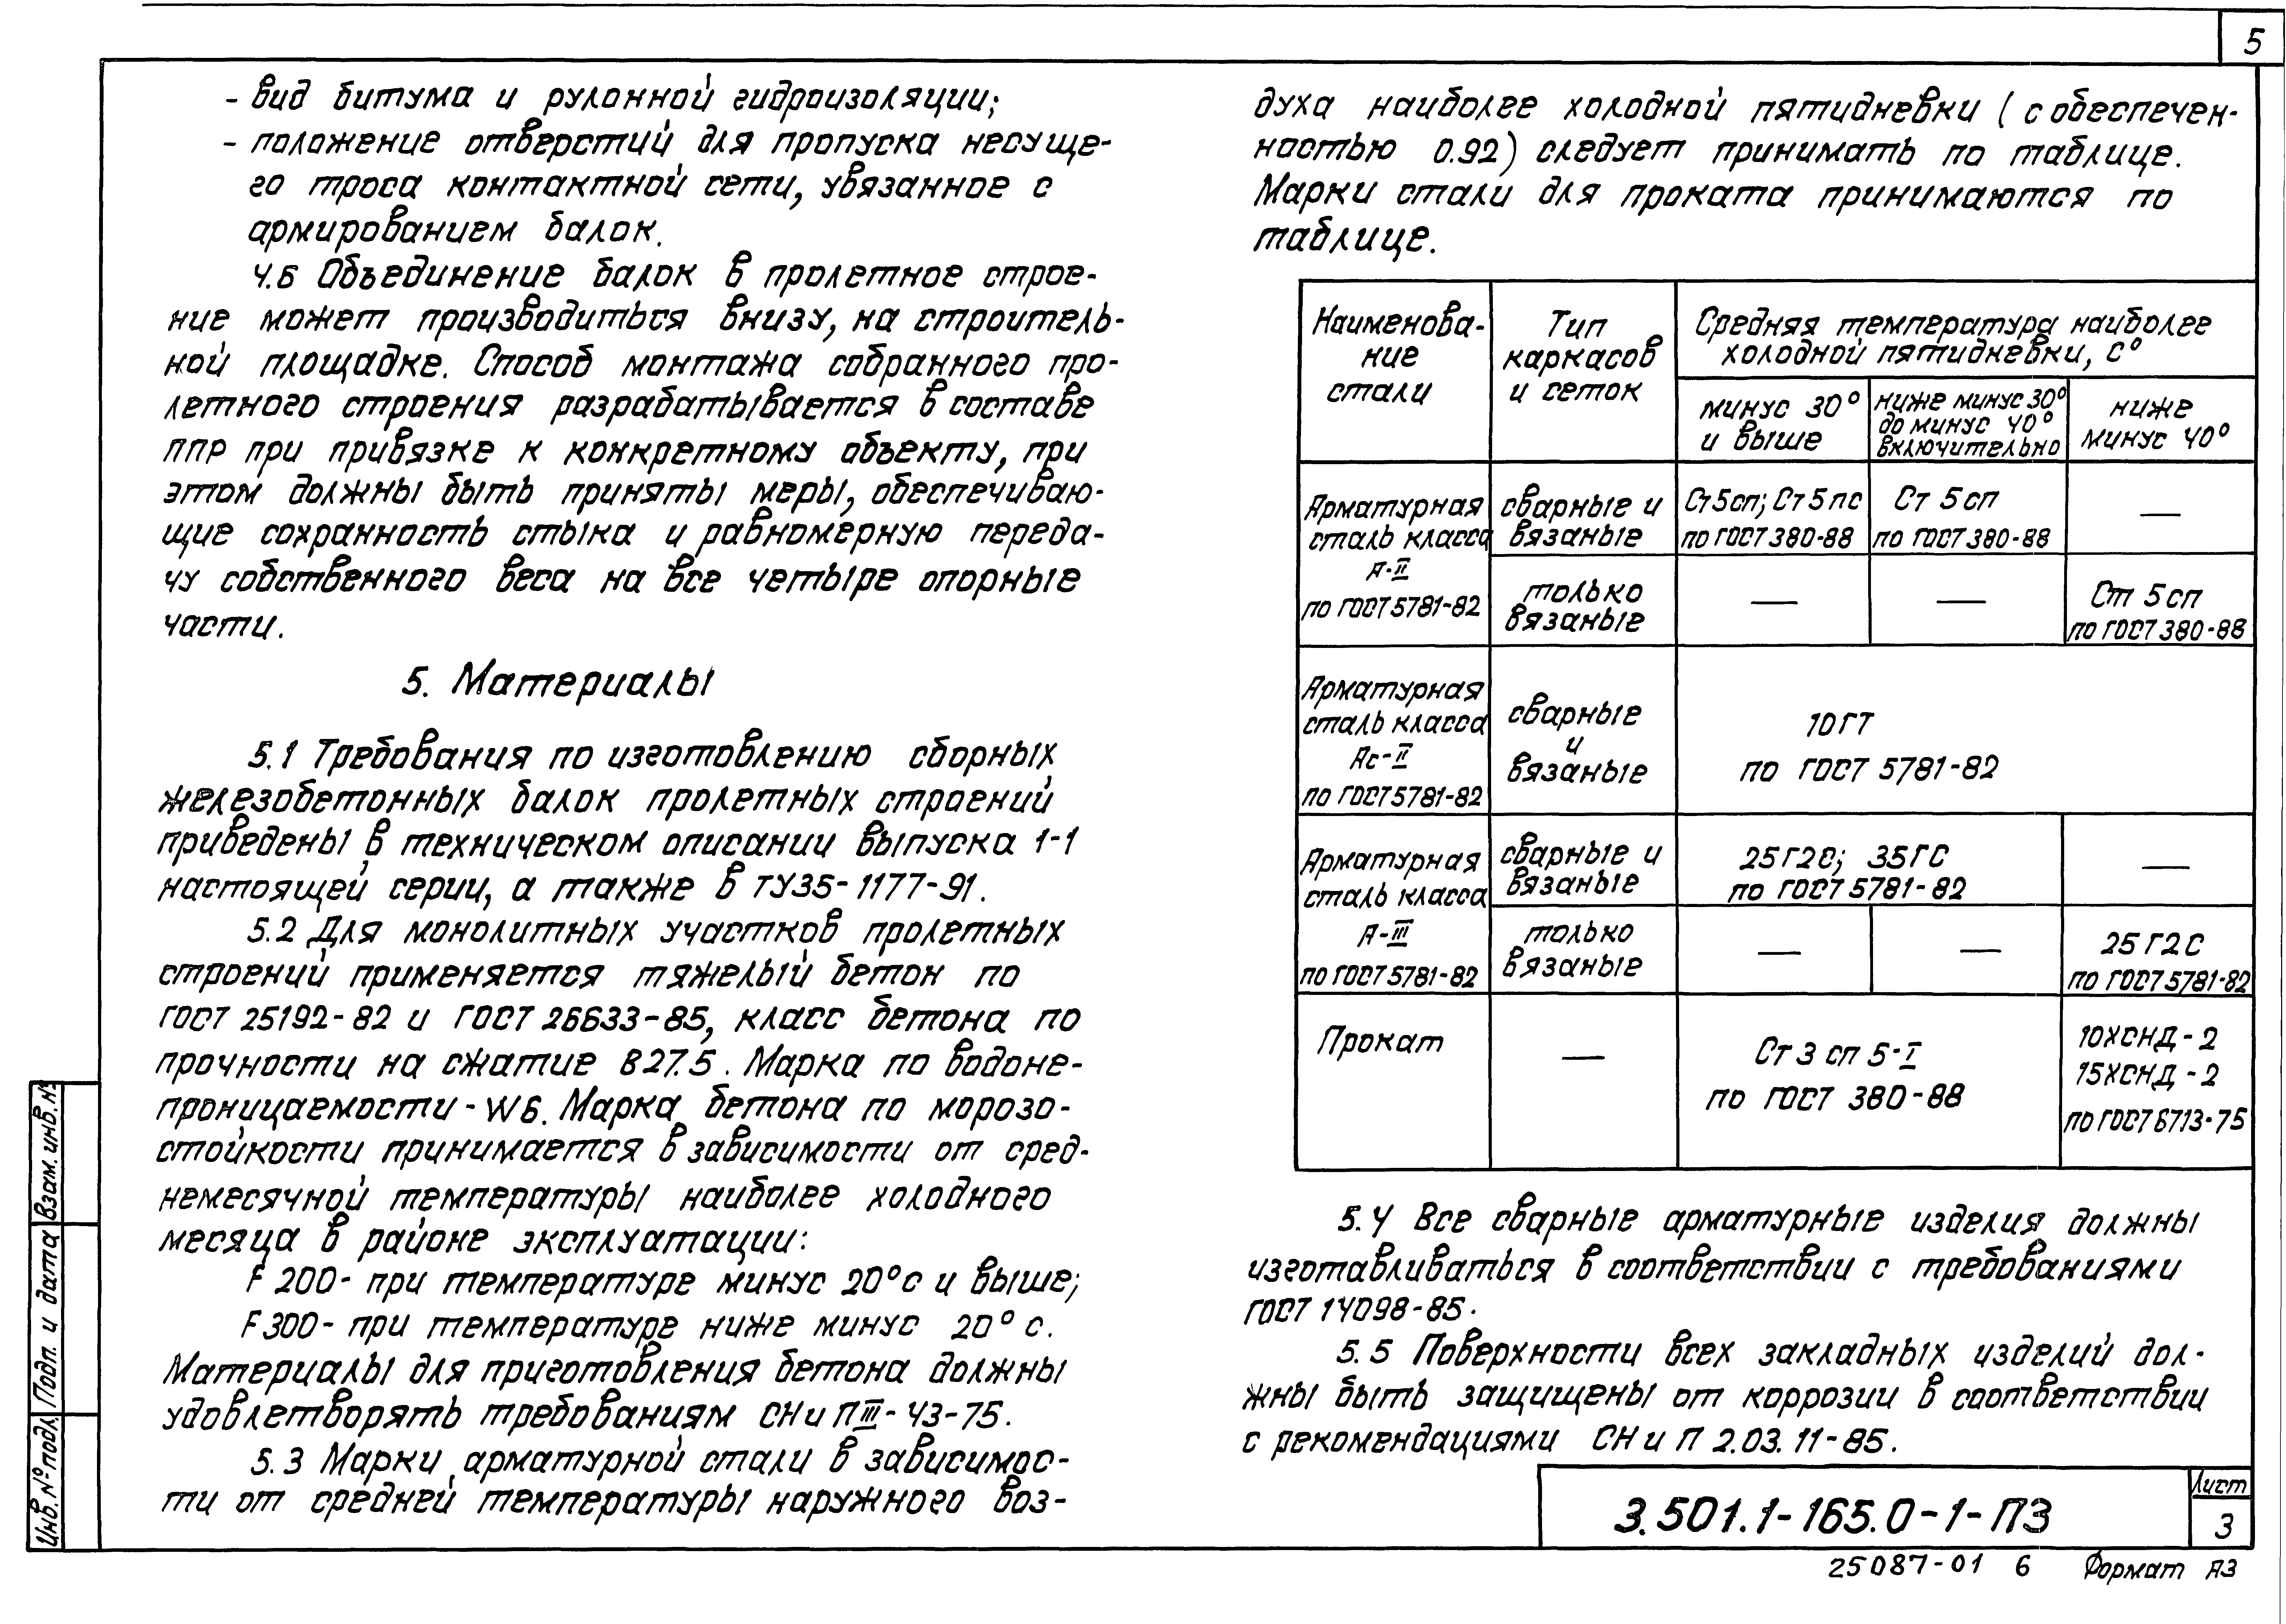 5
- вид битума и рулонной гидроизоляции;
- положение отверстий для пропуска несуще-
го троса контактной сети, увязанное с
армированием балок.
4.6 Объединение балок в пролетное строе-
ние может производиться внизу, на строитель-
ной площадке. Способ монтажа собранного про-
летного строения разрабатывается в составе
ППР при привязке к конкретному объекту, при
этом должны быть приняты меры, обеспечиваю-
щие сохранность стыка и равномерную переда-
чу собственного веса на все четыре опорные
части.
5. Материалы
5.1 Требования по изготовлению сборных
железобетонных балок пролетных строений
приведены в техническом описании выпуска 1-1
настоящей серии, а также в ТУ35-1177-91.
5.2 Для монолитных участков пролетных
строений применяется тяжелый бетон по
ГОСТ 25192-82 и ГОСТ 26633-85, класс бетона по
прочности на сжатие В27.5. Марка по водоне-
проницаемости - W6. Марка бетона по морозо-
стойкости принимается в зависимости от сред-
немесячной температуры наиболее холодного
месяца в районе эксплуатации:
F 200- при температуре минус 20°с и выше;
F 300- при температуре ниже минус 20° с.
Материалы для приготовления бетона должны
удовлетворять требованиям СНиП III-43-75.
5.3 Марки арматурной стали в зависимос-
ти от средней температуры наружного воз-
духа наиболее холодной пятидневки (с обеспечен-
ностью 0.92) следует принимать по таблице.
Марки стали для проката принимаются по
таблице.
Наименова-
ние
стали
Тип
каркасов
и сеток
Средняя температура наиболее
холодной пятидневки, с°
минус 30°
и выше
ниже минус 30°
до минус 40°
включительно
ниже
минус 40°
Арматурная
сталь класса
А-II
по ГОСТ 5781-82
сварные и
вязаные
Ст5сп; Ст5пс
по ГОСТ 380-88
Ст 5сп
по ГОСТ 380-88
—
только
вязаные
—
—
Ст 5сп
по ГОСТ 380-88
Арматурная
сталь класса
Ас-II
по ГОСТ 5781-82
сварные
и
вязаные
10ГТ
по ГОСТ 5781-82
Арматурная
сталь класса
А-III
по ГОСТ 5781-82
сварные и
вязаные
25Г2С; 35ГС
по ГОСТ 5781-82
—
только
вязаные
—
—
25Г2С
по ГОСТ 5781-82
Прокат
—
Ст 3 сп 5-I
по ГОСТ 380-88
10ХСНД-2
15ХСНД-2
по ГОСТ 6713-75
5.4 Все сварные арматурные изделия должны
изготавливаться в соответствии с требованиями
ГОСТ 14098-85.
5.5 Поверхности всех закладных изделий дол-
жны быть защищены от коррозии в соответствии
с рекомендациями СНиП 2.03.11-85.
3.501.1-165.0-1-ПЗ
Лист
3
25087-01 6 Формат А3
Инв. № подл.
Подп. и дата
Взам. инв. №